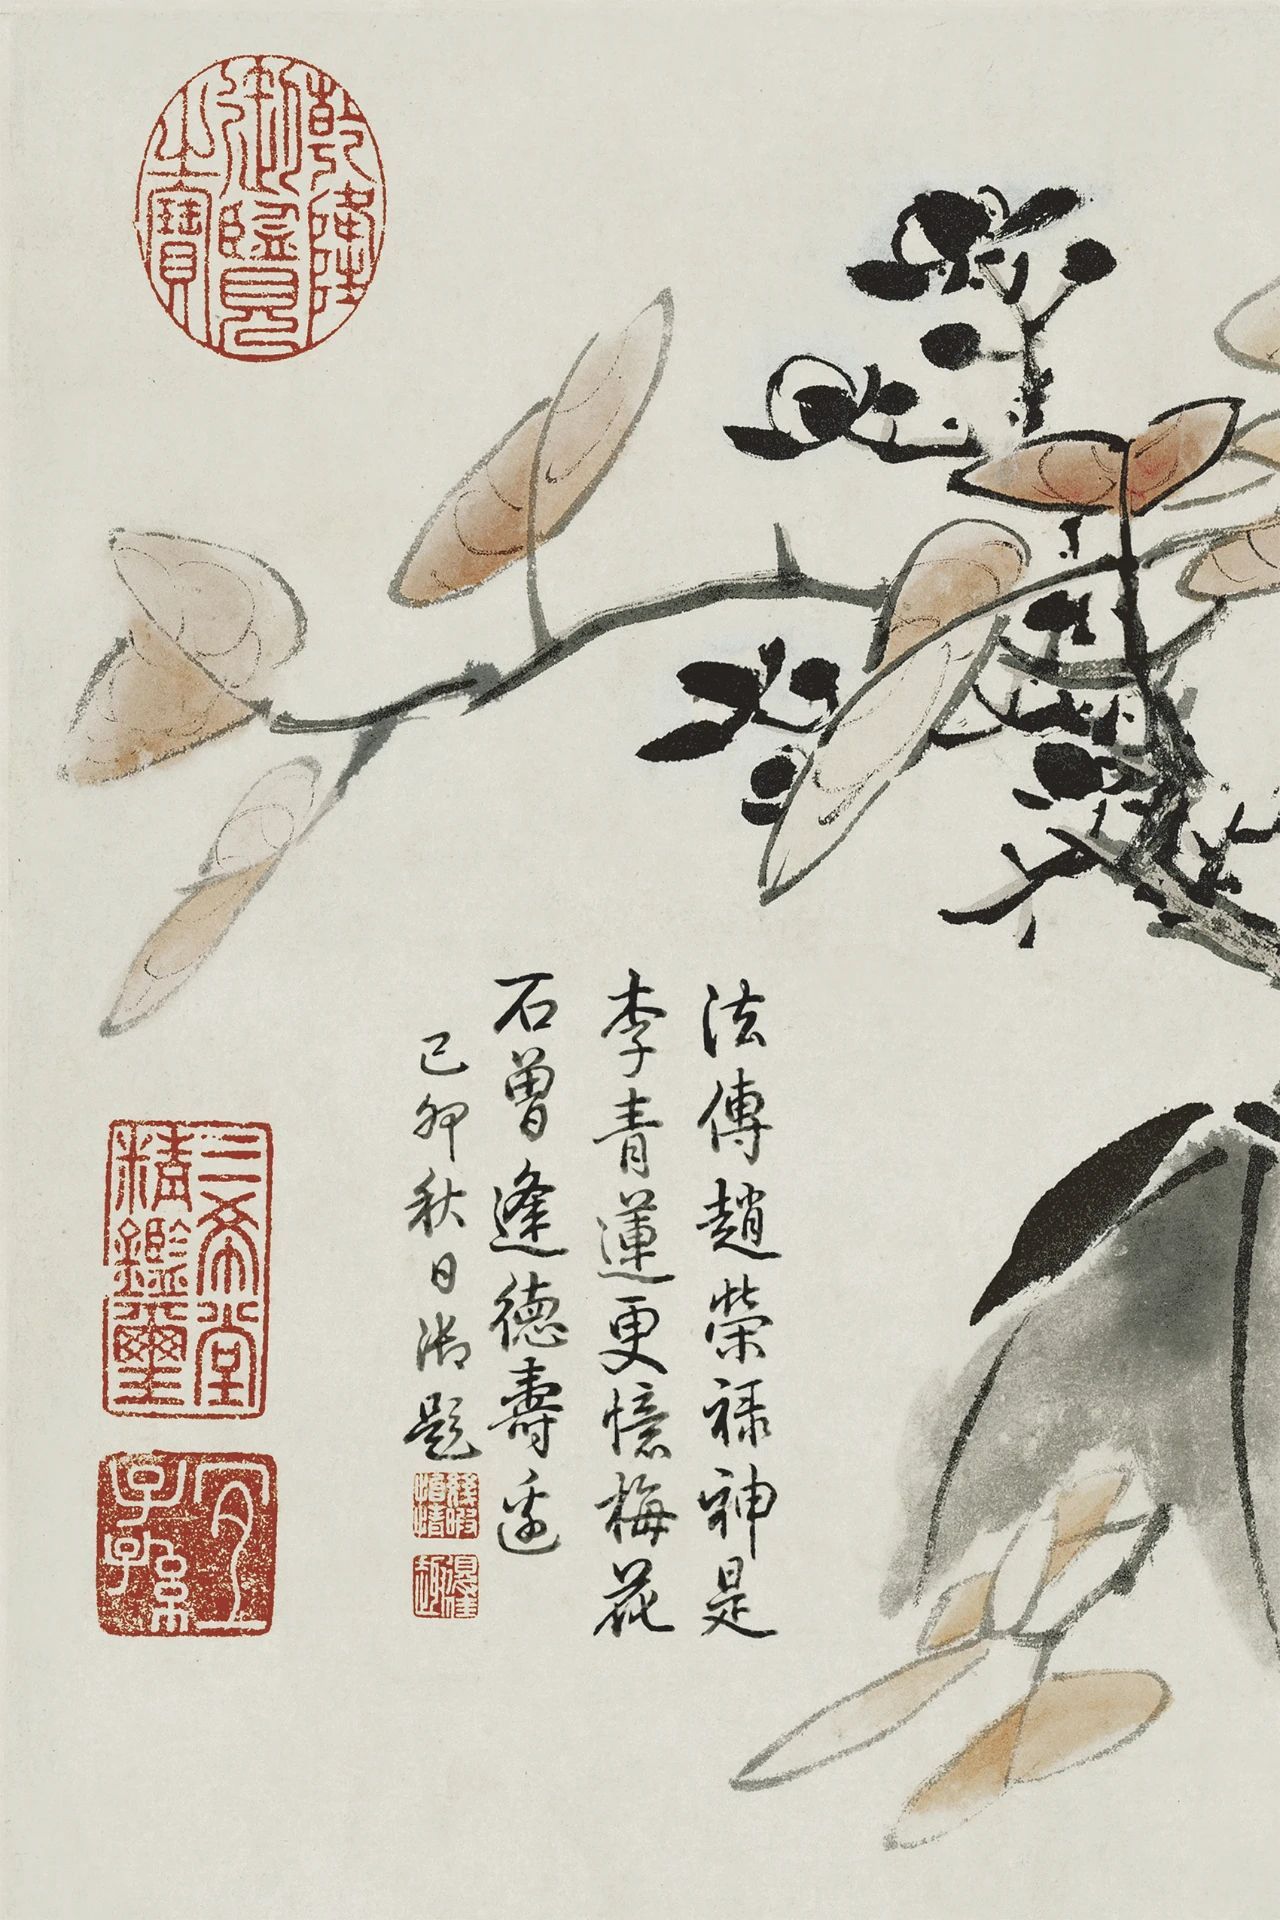 法傳趙榮祿神是
李青蓮更憶梅花
石曾逢德壽邊
己卯秋日御題
乾隆
御覽
之寶
三希堂
精鑑璽
宜
子孫